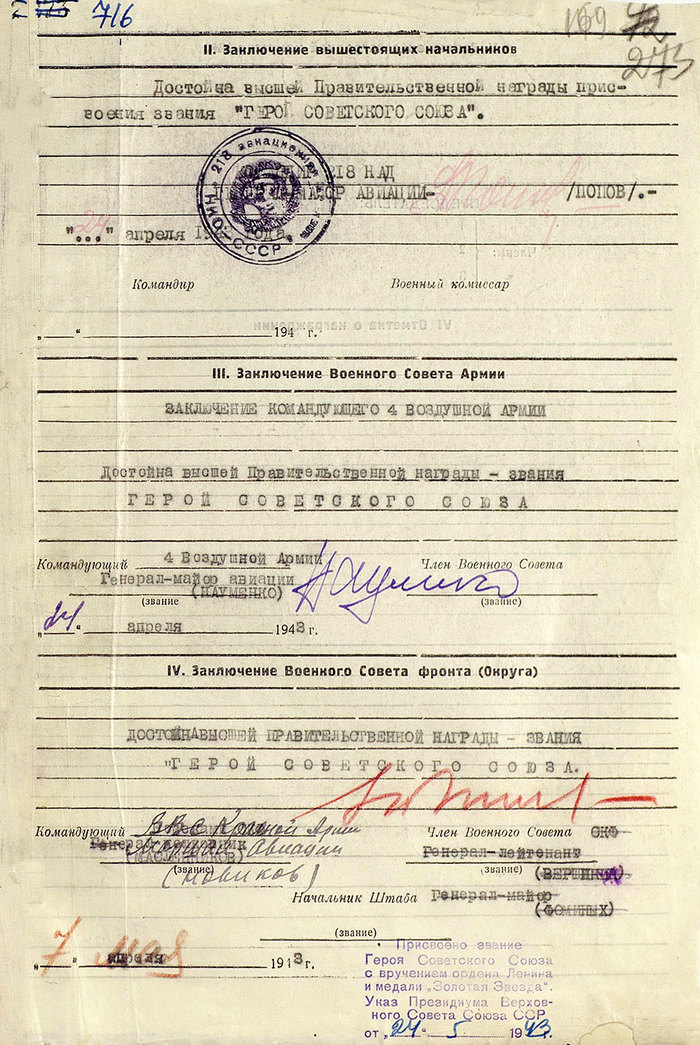 716
169 42
273
II. Заключение вышестоящих начальников
Достойна высшей Правительственной награды прис-
воения звания "ГЕРОЙ СОВЕТСКОГО СОЮЗА".
218 авиационная
СССР
218 НАД
АВИАЦИИ- /ПОПОВ/.-
"24" апреля года.
Командир Военный комиссар
„ “ 194 г.
VI Отметка о награждении
III. Заключение Военного Совета Армии
ЗАКЛЮЧЕНИЕ КОМАНДУЮЩЕГО 4 ВОЗДУШНОЙ АРМИИ
Достойна высшей Правительственной награды - звания
ГЕРОЙ СОВЕТСКОГО СОЮЗА
Командующий 4 Воздушной Армии Член Военного Совета
Генерал-майор авиации
(НАУМЕНКО) Науменко
(звание) (звание)
„24“ апреля 1943 г.
IV. Заключение Военного Совета фронта (Округа)
ДОСТОЙНАВЫСШЕЙ ПРАВИТЕЛЬСТВЕННОЙ НАГРАДЫ - ЗВАНИЯ
"ГЕРОЙ СОВЕТСКОГО СОЮЗА.
Командующий ВВС Красной Армии Член Военного Совета СКФ
Маршал Авиации Генерал-лейтенант
(МАСЛЕННИКОВ)
(звание) (звание) (ВЕРШИНИН)
(Новиков)
Начальник Штаба Генерал-майор
(ФОМИНЫХ)
(звание)
„7“ мая апреля 1943 г.
Присвоено звание
Героя Советского Союза
с вручением ордена Ленина
и медали „Золотая Звезда“.
Указ Президиума Верхов-
ного Совета Союза ССР
от „24“ 5 1943.